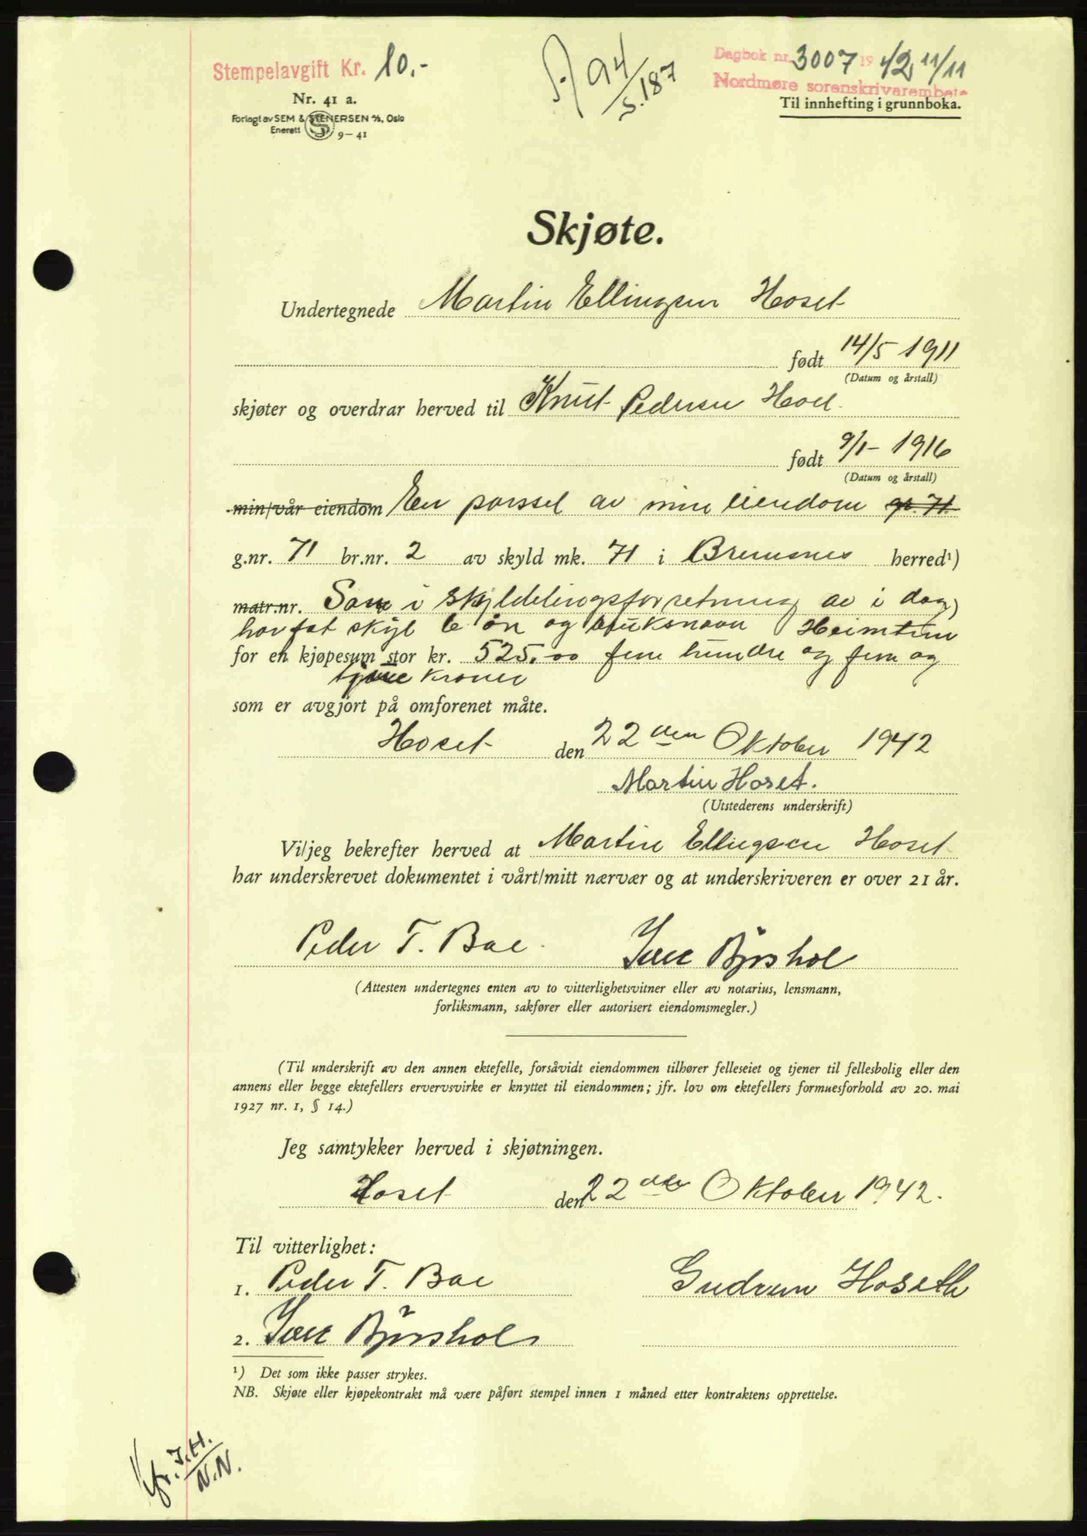 Stempelavgift Kr. 10.-
A 94
S.187
Dagbok nr. 3007 1942 11/11
Nordmøre sorenskriverembete
Nr. 41 a.
Til innhefting i grunnboka.
Forlagt av SEM & STENERSEN A/S, Oslo
Enerett S 9-41
Skjøte.
Undertegnede Martin Ellingsen Hoset
født 14/5 1911
(Datum og årstall)
skjøter og overdrar herved til Knut Pedersen
født 9/1-1916
(Datum og årstall)
min/vår eiendom En parssel av min eiendom gr. 71
g.nr. 71 br.nr. 2 av skyld mk. 71 i Bremsnes herred¹)
matr.nr. Som i skyldelingsforretning av i dag)
har fåt skyl 6 ør og bruksnavn
for en kjøpesum stor kr. 525.00 fem hundre og fem og
tjue kroner
som er avgjort på omforenet måte.
Hoset den 22 den Oktober 1942
Martin Hoset.
(Utstederens underskrift)
Vi/jeg bekrefter herved at Martin Ellingsen Hoset
har underskrevet dokumentet i vårt/mitt nærvær og at underskriveren er over 21 år.
Peder T. Bae
(Attesten undertegnes enten av to vitterlighetsvitner eller av notarius, lensmann,
forliksmann, sakfører eller autorisert eiendomsmegler.)
(Til underskrift av den annen ektefelle, forsåvidt eiendommen tilhører felleseiet og tjener til fellesbolig eller den
annens eller begge ektefellers ervervsvirke er knyttet til eiendommen; jfr. lov om ektefellers formuesforhold av 20. mai
1927 nr. 1, § 14.)
Jeg samtykker herved i skjøtningen.
Hoset den 22 den Oktober 1942.
Til vitterlighet:
1. Peder T. Bae Gudrun Hoseth
2.
¹) Det som ikke passer strykes.
NB. Skjøte eller kjøpekontrakt må være påført stempel innen 1 måned etter kontraktens opprettelse.
J.H.
N.N.